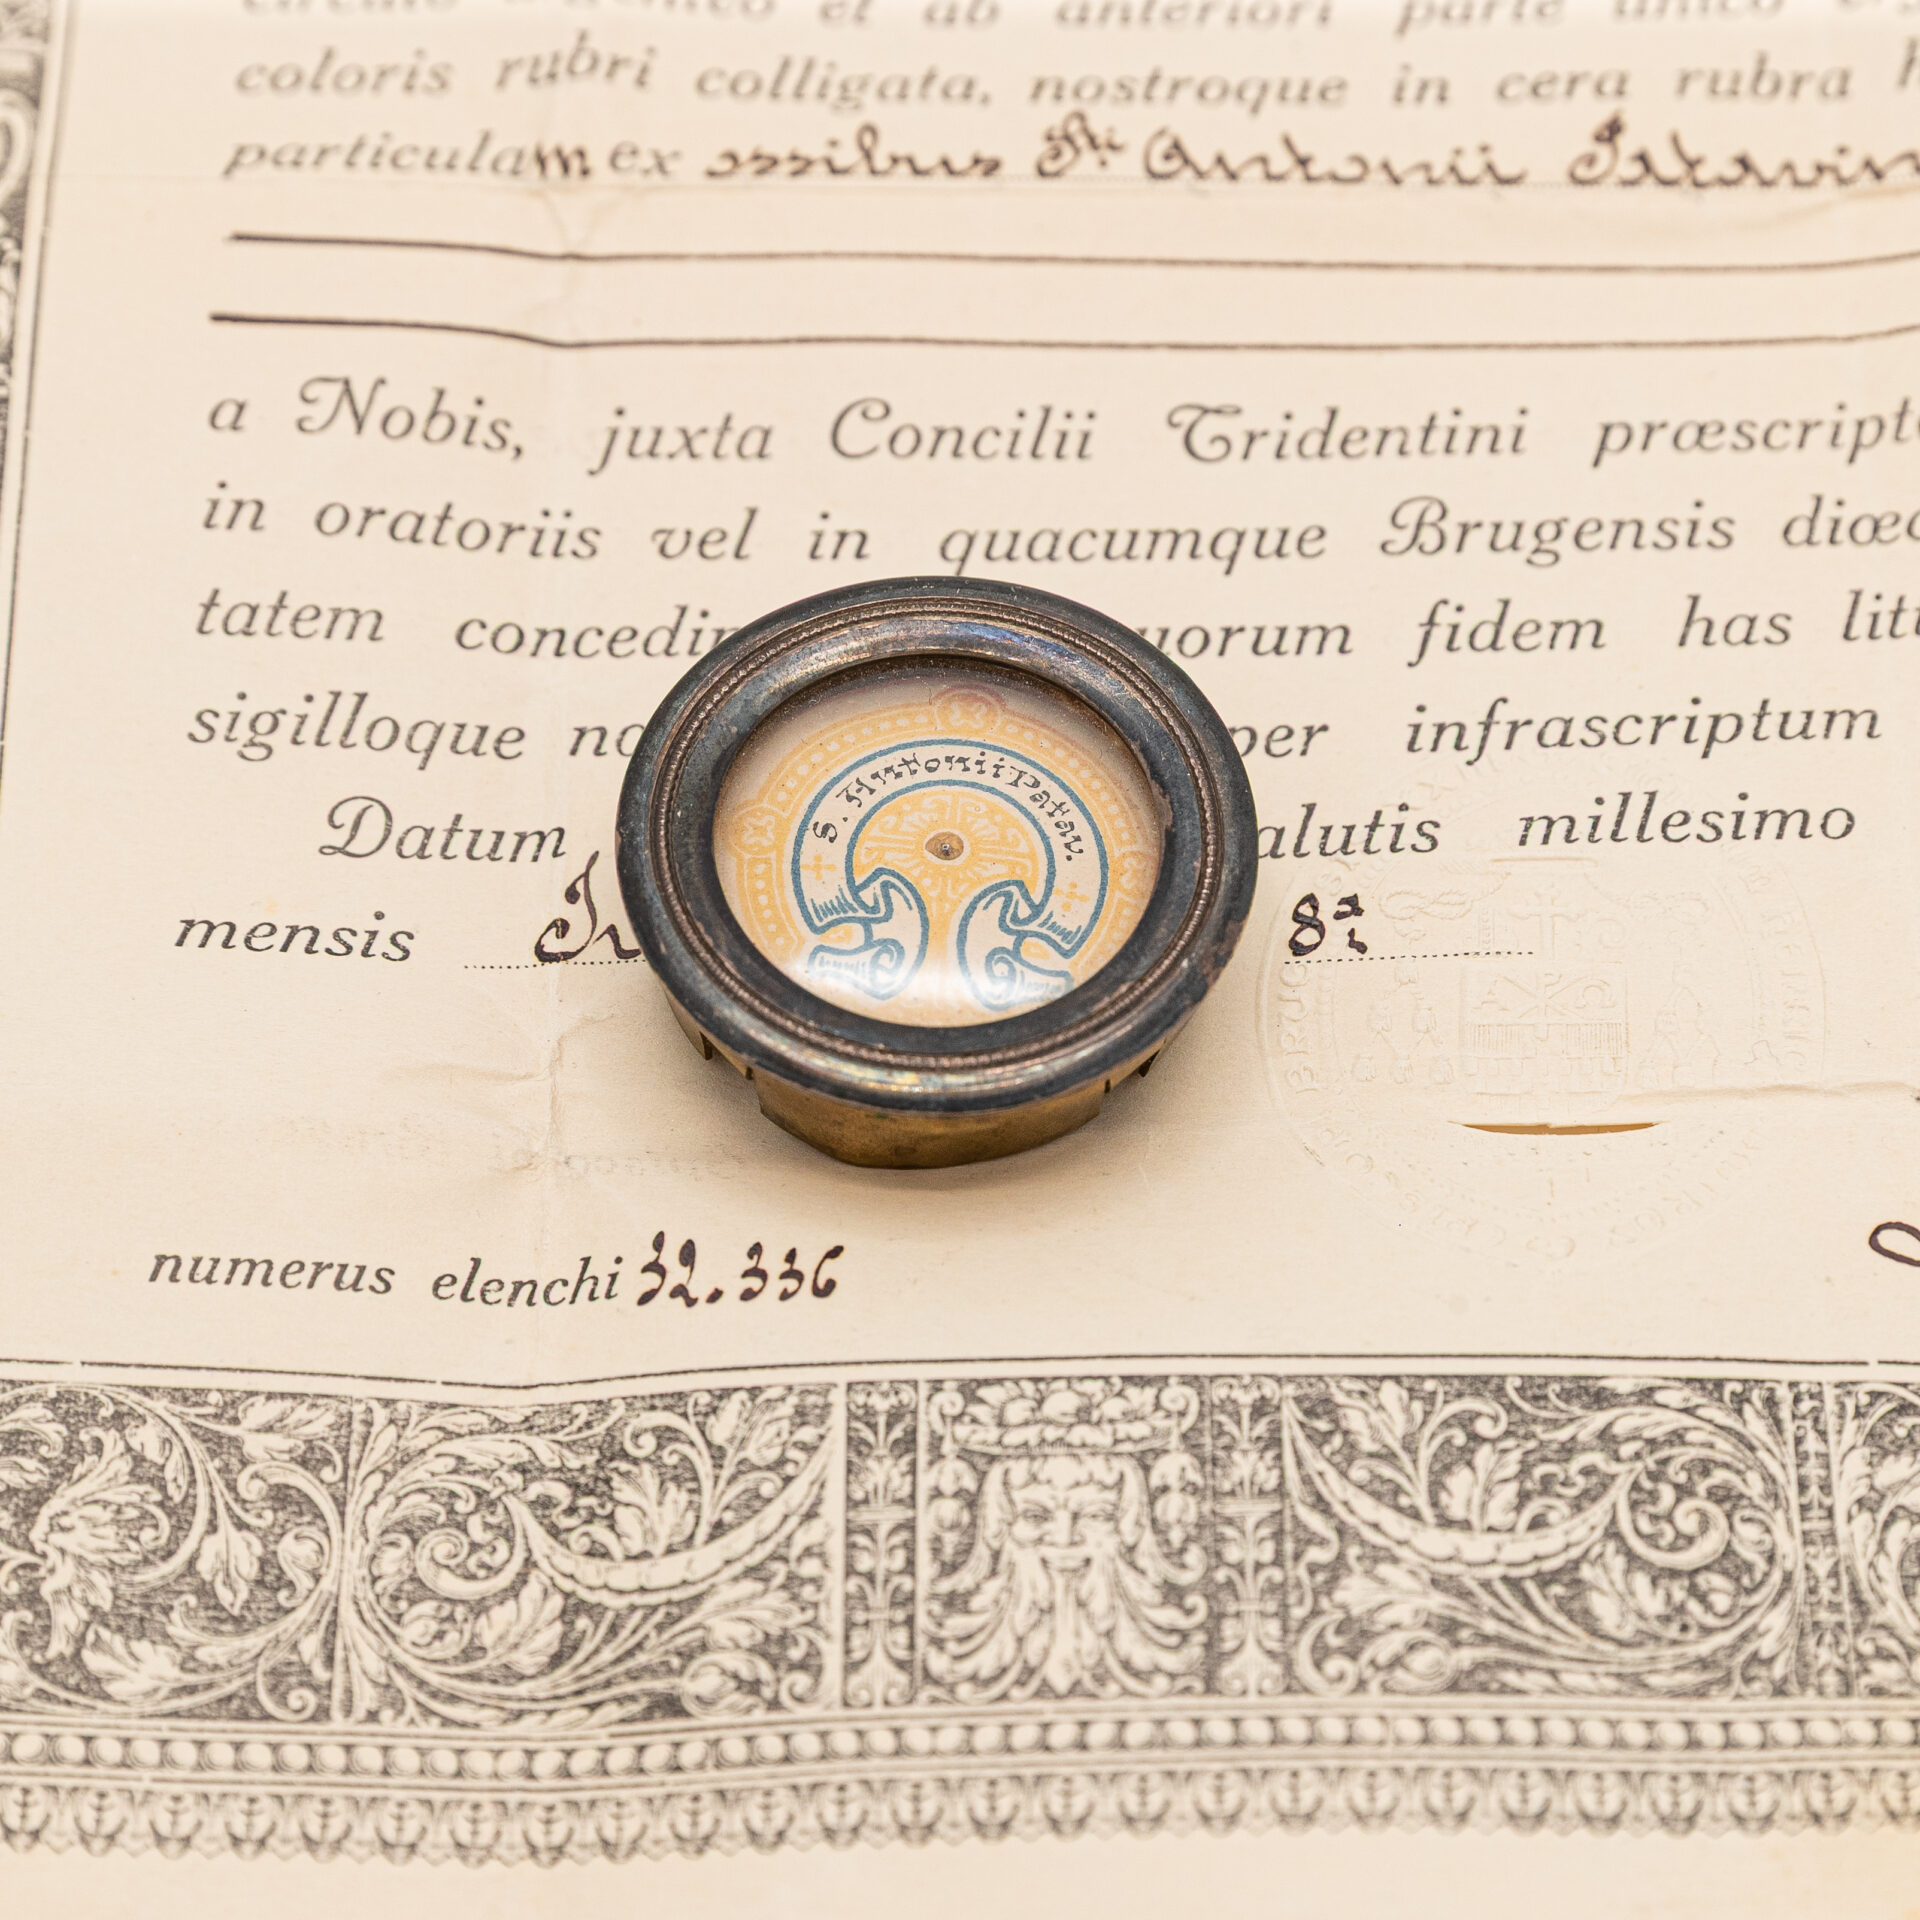 et ab anteriori parte unico
coloris rubri colligata, nostroque in cera rubra
particulam ex ossibus Sti Antonii Patavin
a Nobis, juxta Concilii Tridentini præscript
in oratoriis vel in quacumque Brugensis diœc
tatem concedim uorum fidem has litt
sigilloque no per infrascriptum
S. Antonii Patav.
Datum alutis millesimo
mensis 8a
numerus elenchi 32.336